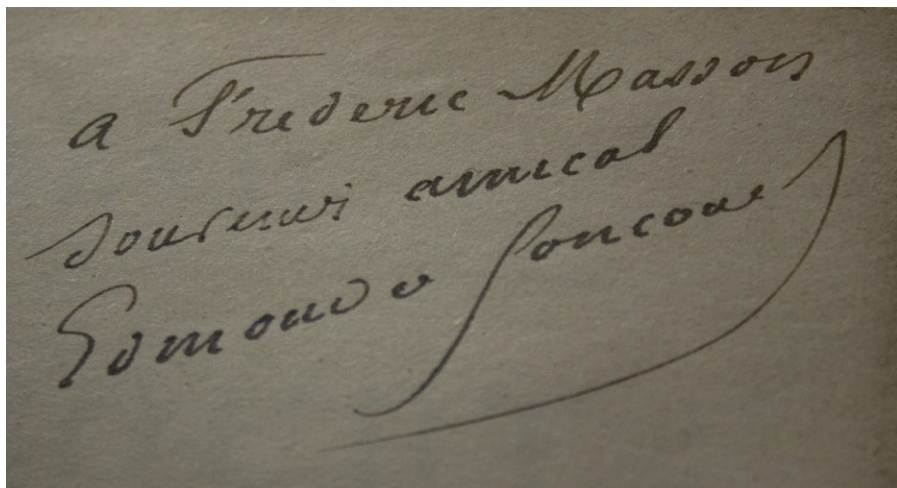 a Frederic Masson
souvenir amical
Edmond de Goncourt